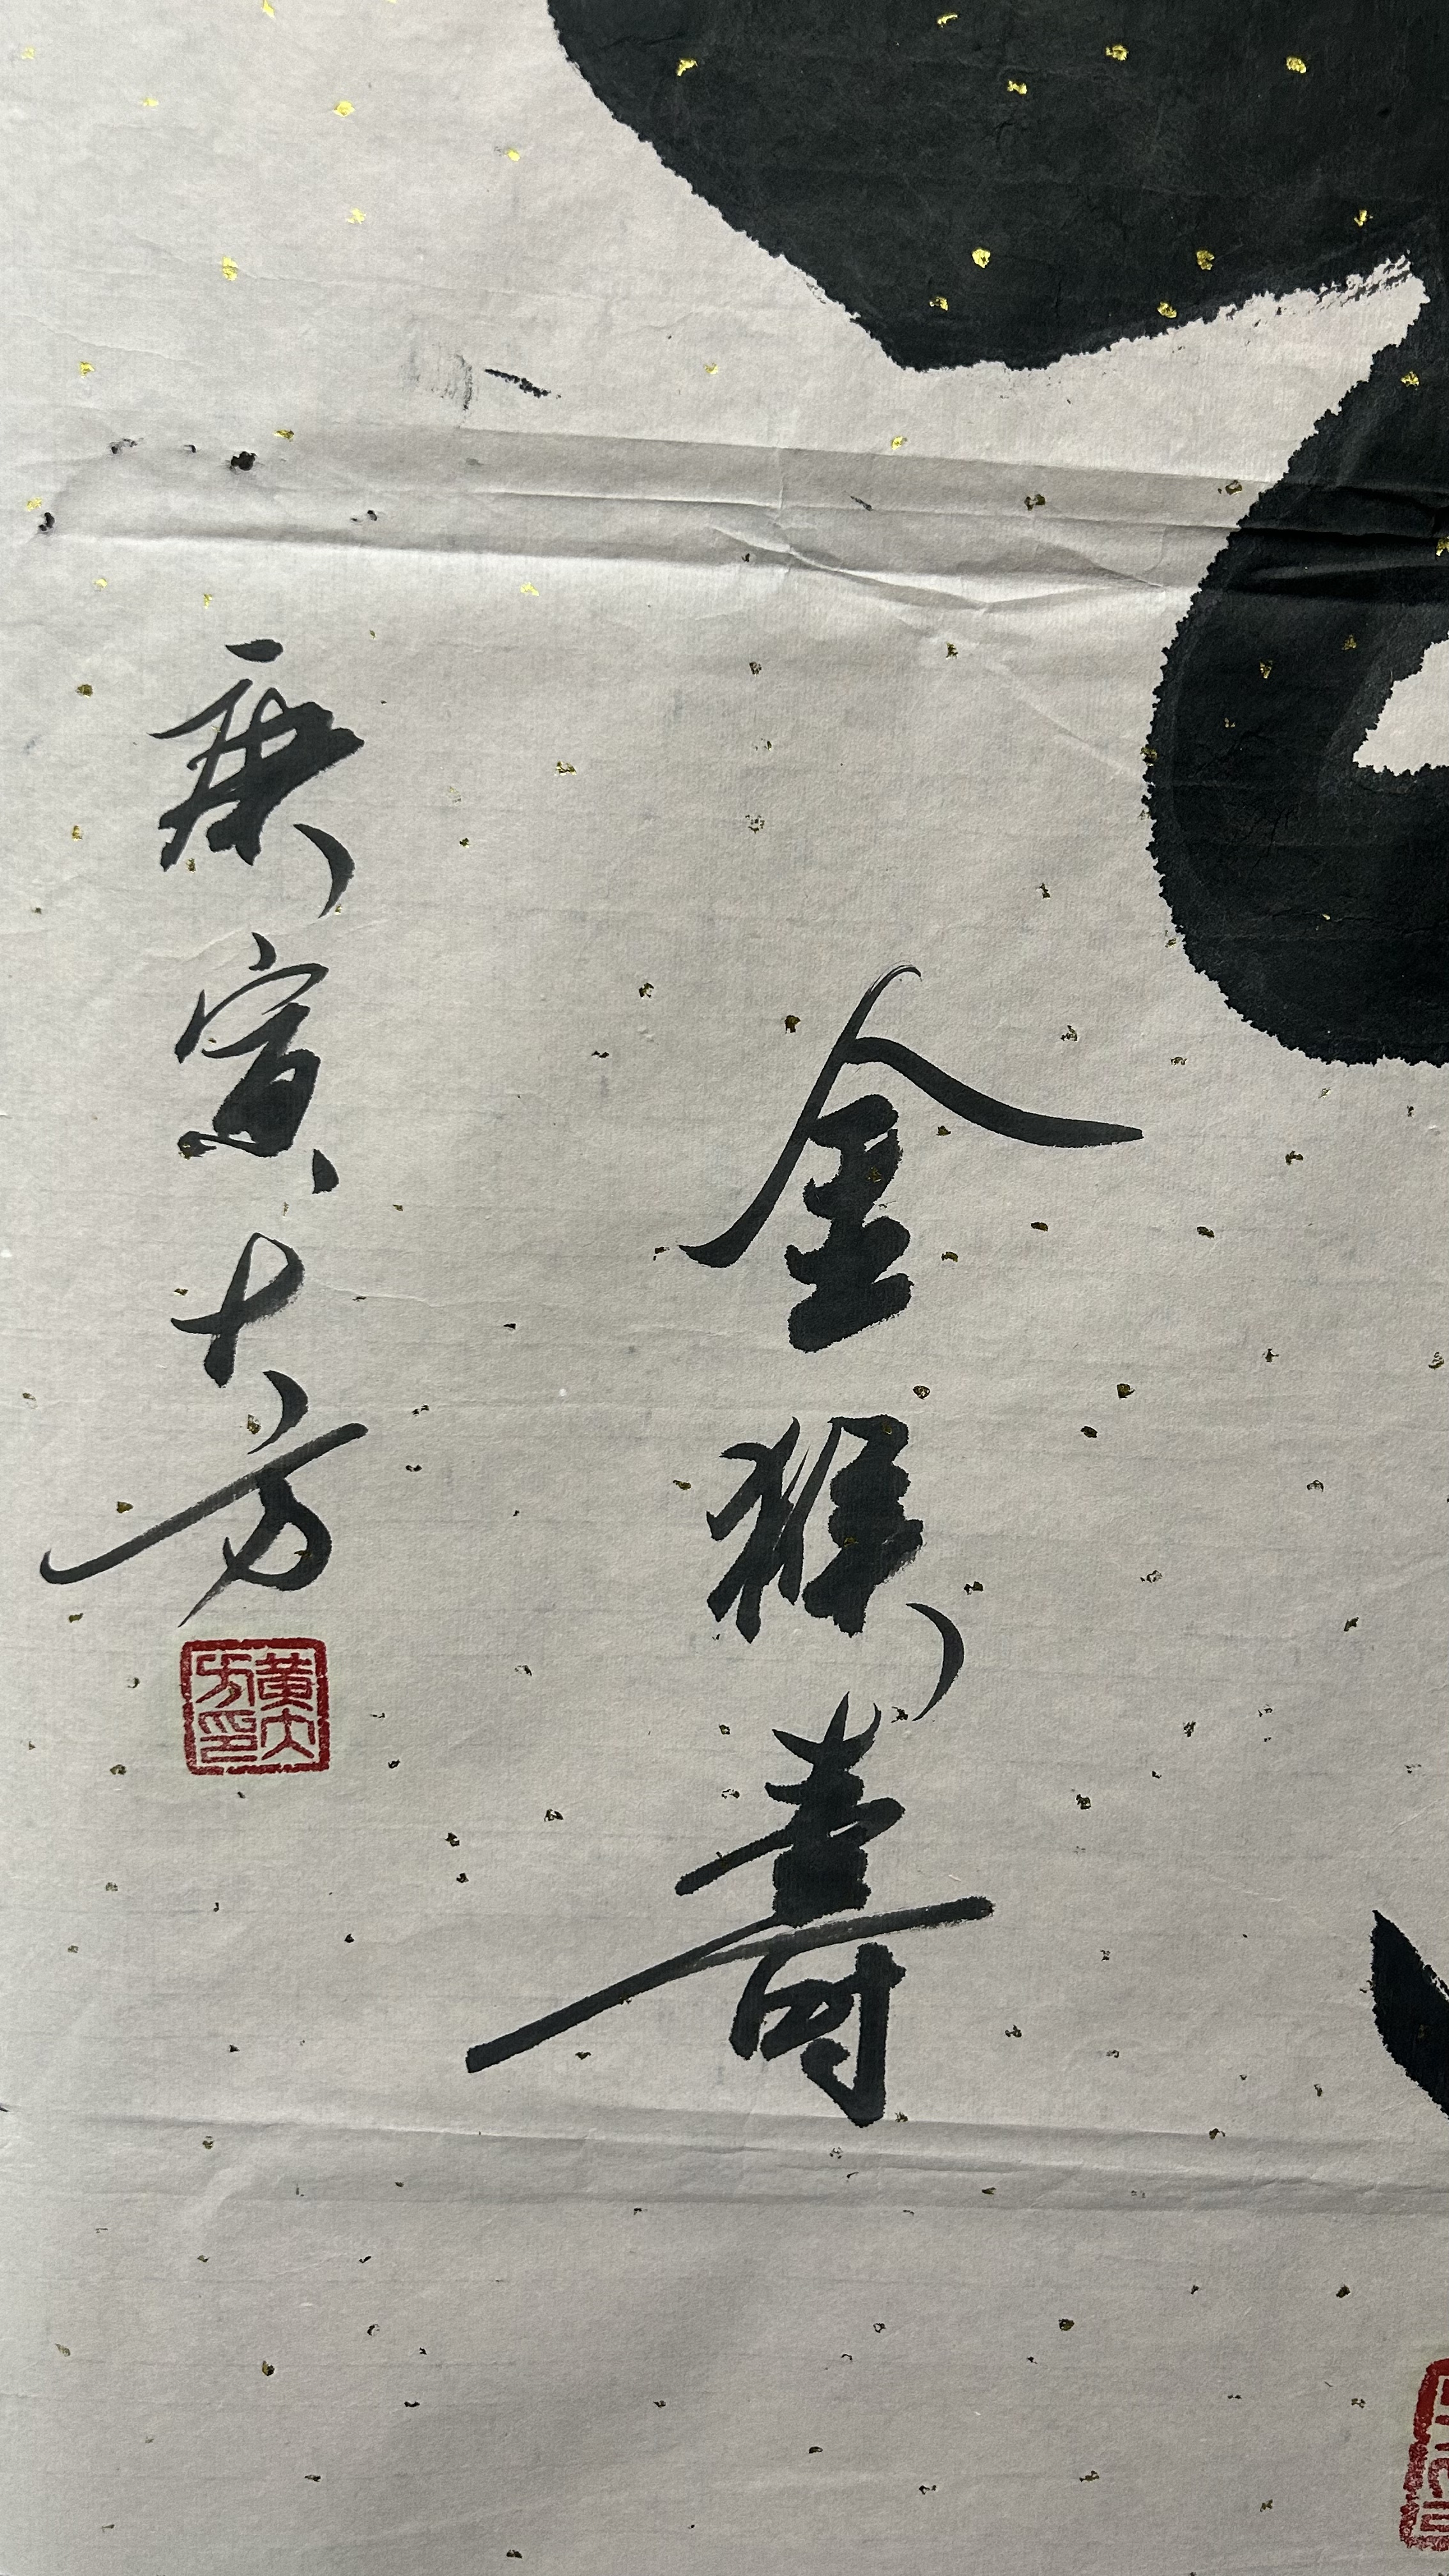 金猴壽
庚寅大方
黄大方印